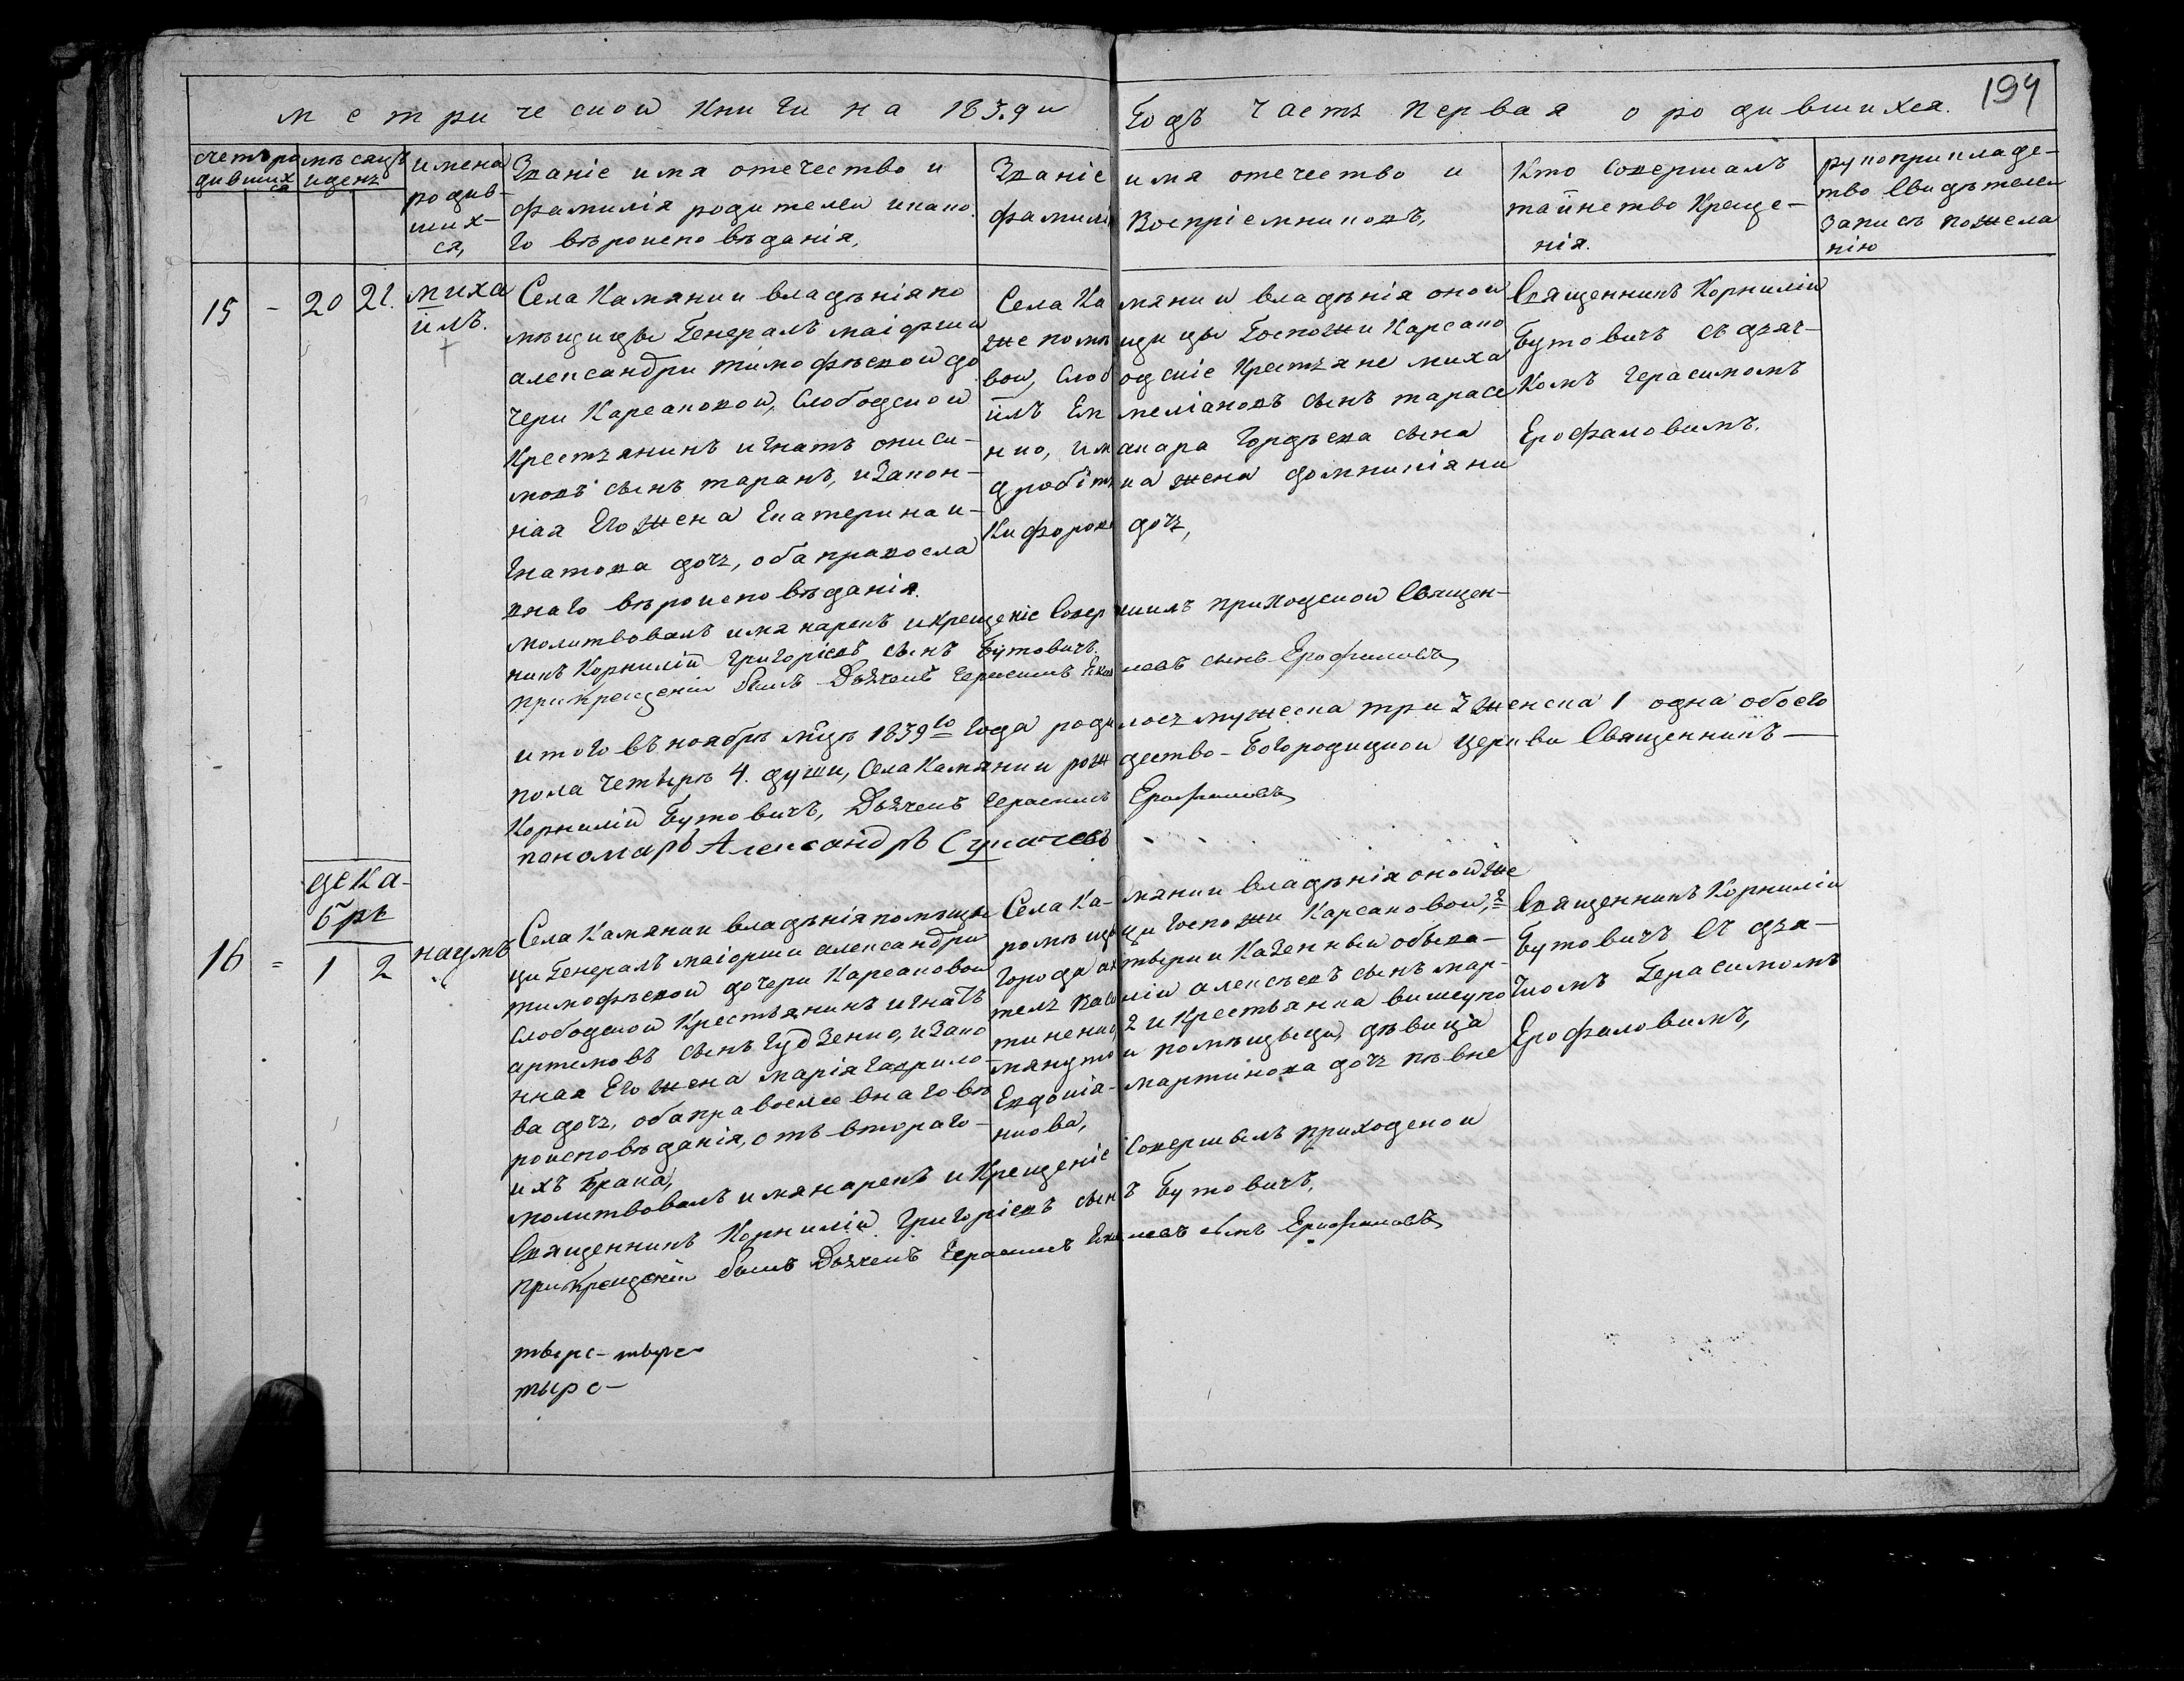 метрической книги на 1839й Годъ Часть Первая о родившихся. 194
счетъ ро
дивших
ся
мѣсяцъ
и день
имена
родив-
ших-
ся,
Званіе имя отечество и
фамилія родителей и како
го вѣроисповѣданія,
Званіе имя отечество и
фамилія Воспріемниковъ,
Кто совершалъ
таинство Креще-
нія.
рукоприкладс-
тво Свидѣтелей
записъ по жела
нію
15 - 20 21. миха
илъ.
Села Камянки владѣнія по
мѣщицы Генералъ маіорши
александры тимофѣевой до
чери Карсаковой, Слободской
Крестьянинъ игнатъ ониси-
мовъ сынъ таранъ, и Закон-
ная Его жена Екатерина и-
гнатова дочь, оба правосла
внаго вѣроисповѣданія.
Села Камянки владѣнія оной
же помѣщицы Госпожи Карсако
вой, Слободскіе Крестьяне миха
илъ Емеліановъ сынъ тарасе
нко, и макара Гордѣева сына
дробітка жена домникія ни
кифорова дочь,
Священникъ Корнилій
Бутовичъ съ дяч-
комъ Герасимомъ
Ерофаловимъ.
молитвовалъ имя нарекъ и крещеніе Совершилъ приходской Священ-
никъ Корнилій Григоріевъ сынъ Бутовичъ.
При крещеніи былъ Дьячекъ Герасимъ сынъ Ерофаловъ
итого въ ноябрѣ мцѣ 1839го года родилось мужеска три 3 женска 1 одна обоего
пола четырѣ 4. души, Села Камянки рождество-Богородицкой Церкви Священникъ
Корнилій Бутовичъ, Дьячекъ Герасимъ Ерофаловъ
пономарь Александръ
дека-
брь
16 = 1 2 наумъ
Села Камянки владѣнія помѣщи
ци Генералъ маіорши александри
тимофѣевой дочери Карсаковой
Слободской Крестьянинъ игнатъ
артемовъ сынъ Гудзенко, и Зако
нная Его жена марія Гаврило
ва дочь, оба православнаго вѣ
роисповѣданія, отъ втораго
ихъ Брака,
Села Камянки владѣнія оной же
помѣщици Госпожи Карсаковой,
Города Казенный обыва-
тель алексѣевъ сынъ мар-
тиненко, 2 и Крестьянка вишеупо
мянутой помѣщыци, дѣвица
Евдокія мартинова дочь пѣвне
нкова,
Священникъ Корнилій
Бутовичъ съ дя-
чкомъ Герасимомъ
Ерофаловимъ,
молитвовалъ имя нарекъ и Крещеніе Совершилъ приходской
Священникъ Корнилій Григоріевъ сынъ Бутовичъ,
При крещеніи былъ Дьячекъ Герасимъ сынъ Ерофаловъ